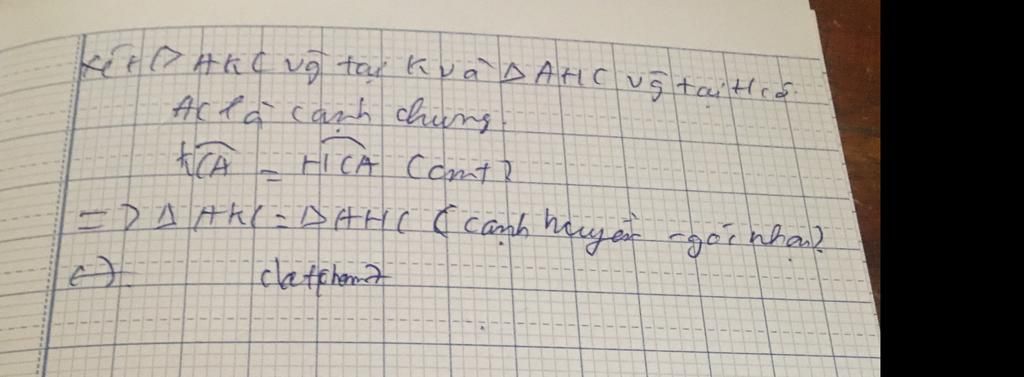 Xét Δ AKC vg tại K và Δ AHC vg tại H có.
AC là cạnh chung.
KCA = HCA (cmt)
=> Δ AKC = Δ AHC (cạnh huyền - góc nhọn)